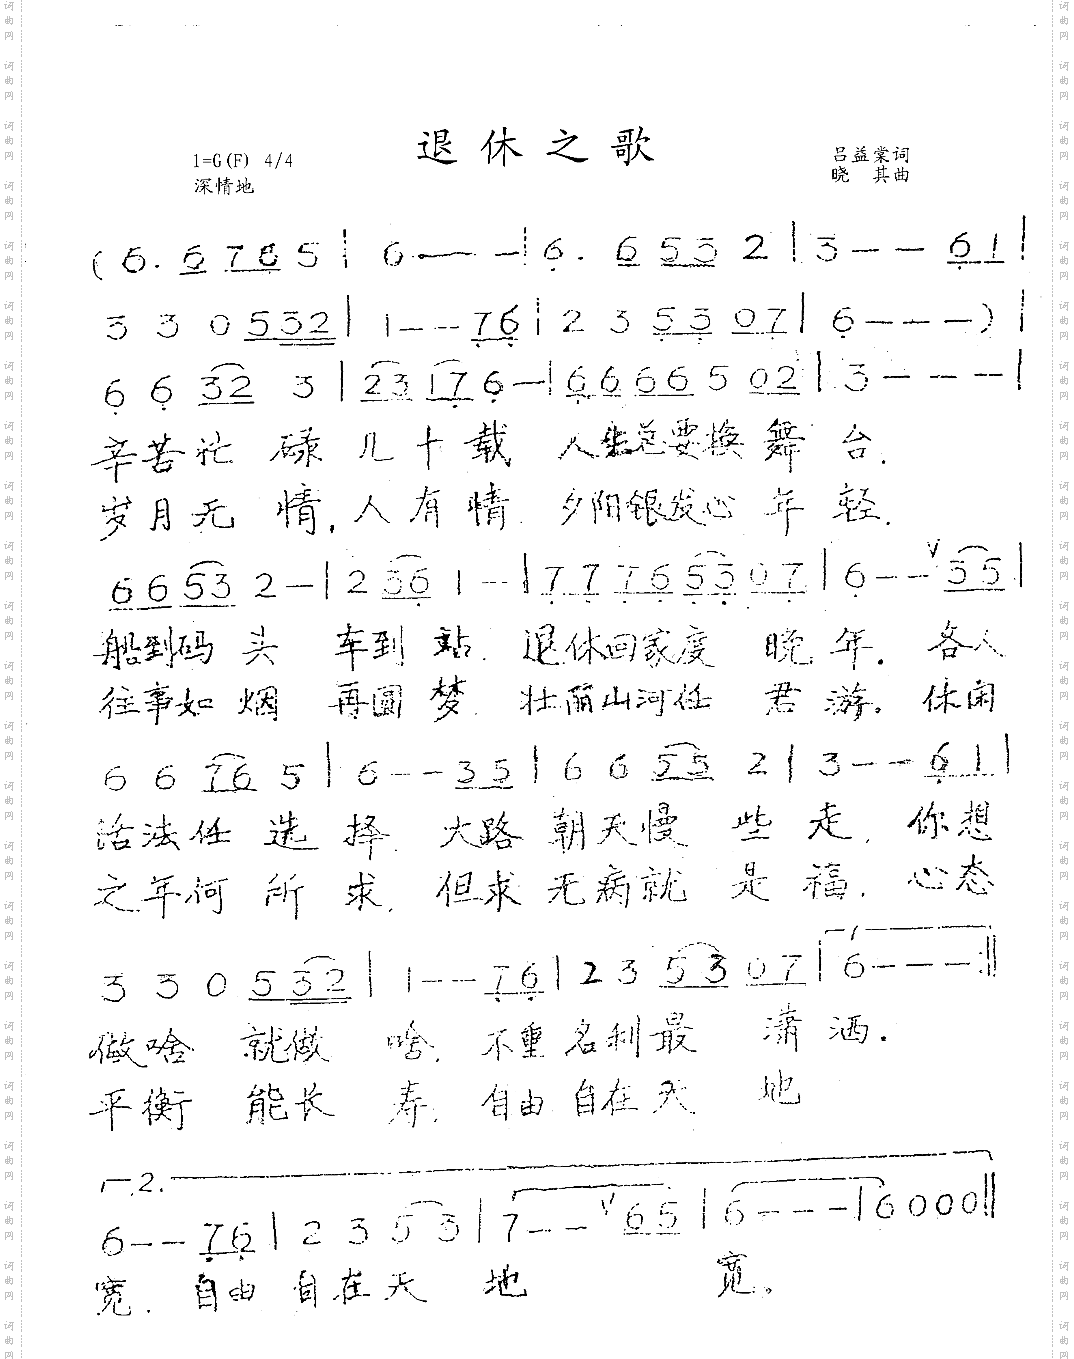 退休之歌
1=G(F) 4/4
深情地
吕益棠词
晓 其曲
(6. 6 7 6 5 | 6 — — — | 6. 6 5 3 2 | 3 — — 6 1 |
3 3 0 5 3 2 | 1 — — 7 6 | 2 3 5 3 0 7 | 6 — — —) |
6 6 3 2 3 | 2 3 1 7 6 — | 6 6 6 6 5 0 2 | 3 — — — |
辛苦忙 碌 几 十 载 人生总要换 舞 台.
岁月无 情, 人 有 情. 夕阳银发心 年 轻.
6 6 5 3 2 — | 2 3 6 1 — | 7 7 7 6 5 3 0 7 | 6 — — ∨ 3 5 |
船到码 头 车到 站. 退休回家度 晚 年. 各人
往事如 烟 再圆 梦. 壮丽山河任 君 游. 休闲
6 6 7 6 5 | 6 — — 3 5 | 6 6 5 5 2 | 3 — — 6 1 |
活法任 选 择. 大路 朝天慢 些 走. 你想
之年何 所 求. 但求 无病就 是 福. 心态
1
3 3 0 5 3 2 | 1 — — 7 6 | 2 3 5 3 0 7 | 6 — — — :||
做啥 就做 啥. 不重 名利最 潇 洒.
平衡 能长 寿. 自由 自在天 地
2.
6 — — 7 6 | 2 3 5 3 | 7 — — ∨ 6 5 | 6 — — — | 6 0 0 0 ||
宽. 自由 自在天 地 宽。
词曲网